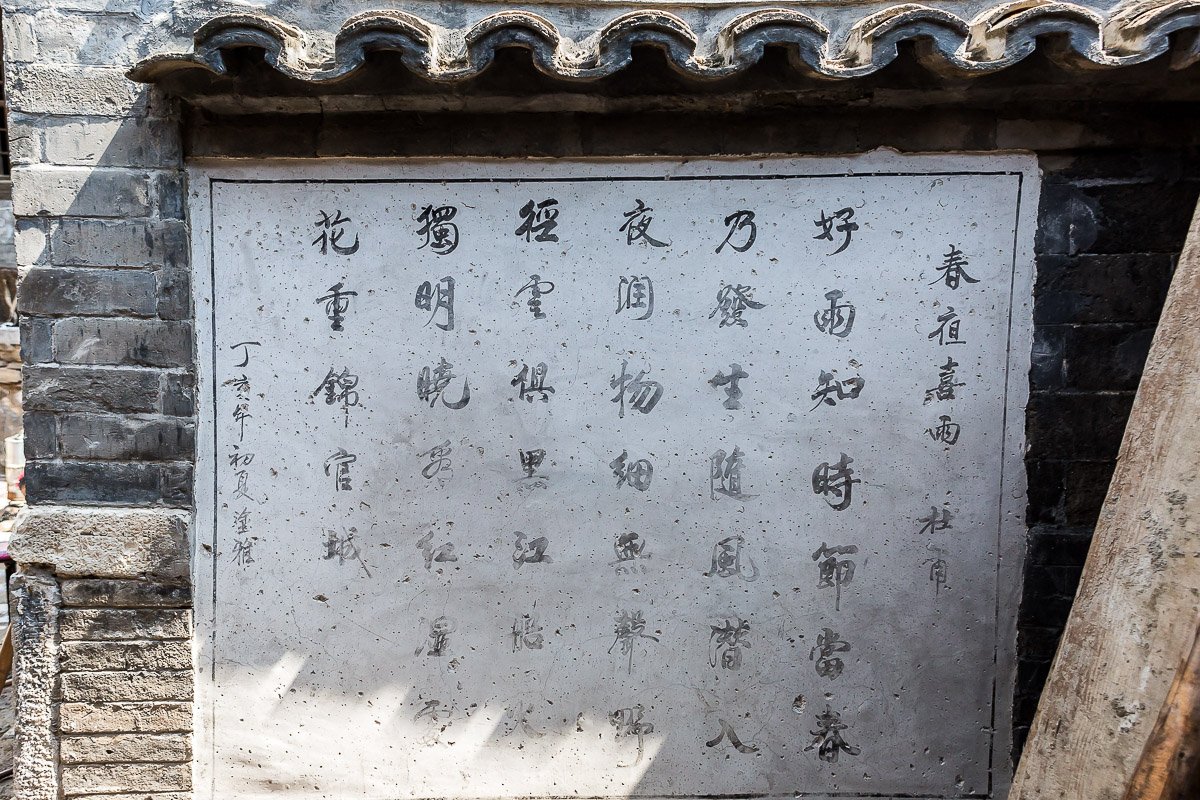 春夜喜雨 杜甫
好雨知時節當春
乃發生隨風潛入
夜润物细無聲野
徑雲俱黑江船火
獨明曉看红濕處
花重錦官城
丁亥年初夏塗雅